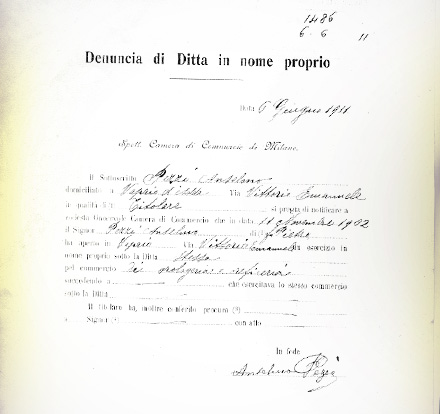 1486
6-6 11
Denuncia di Ditta in nome proprio
Data 6 Giugno 1911
Spett. Camera di Commercio di Milano,
Il Sottoscritto Pozzi Anselmo
domiciliato a Vaprio d'Adda Via Vittorio Emanuele
in qualità di Titolare si pregia di notificare a
codesta Onorevole Camera di Commercio che in data 11 Novembre 1902
il Signor Pozzi Anselmo di Pietro
ha aperto in Vaprio Via Vittorio Emanuele un esercizio in
nome proprio sotto la Ditta Stessa
pel commercio di orologeria e oreficeria
succedendo a che esercitava lo stesso commercio
sotto la Ditta
Il titolare ha, inoltre conferito procura (²)
a Signor (³) con atto
In fede
Anselmo Pozzi